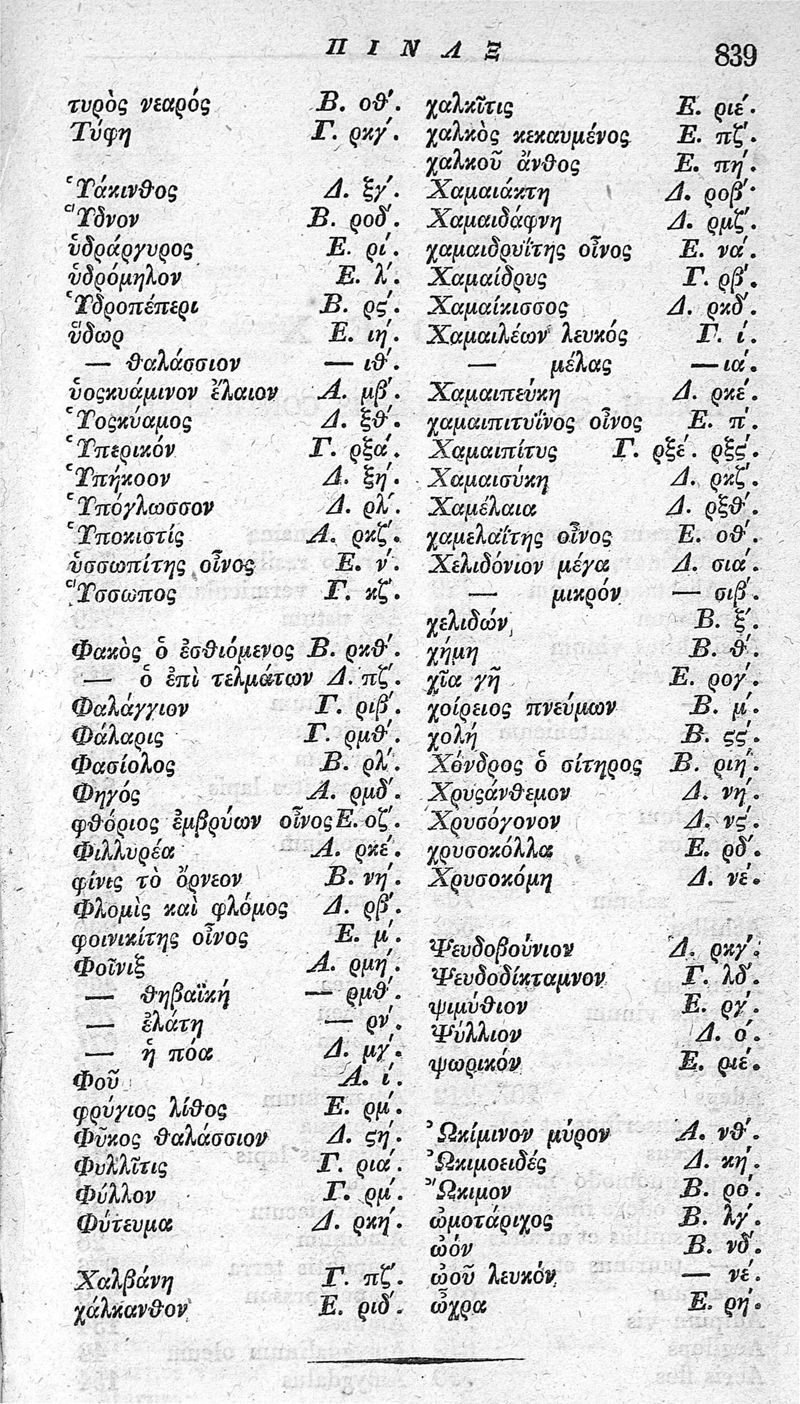 ΠΙΝΑΞ
839
τυρὸς νεαρός Β. οθ΄.
Τύφη Γ. ρκγ΄.
Ὑάκινθος Δ. ξγ΄.
Ὕδνον Β. ροδ΄.
ὑδράργυρος Ε. ρί.
ὑδρόμηλον Ε. λ΄.
Ὑδροπέπερι Β. ρς΄.
ὕδωρ Ε. ιη΄.
— θαλάσσιον — ιθ΄.
ὑοσκυάμινον ἔλαιον Α. μβ΄.
Ὑοσκύαμος Δ. ξθ΄.
Ὑπερικόν Γ. ρξά.
Ὑπήκοον Δ. ξη΄.
Ὑπόγλωσσον Δ. ρλ΄.
Ὑποκιστίς Α. ρκζ΄.
ὑσσωπίτης οἶνος Ε. ν΄.
Ὕσσωπος Γ. κζ΄.
Φακὸς ὁ ἐσθιόμενος Β. ρκθ΄.
— ὁ ἐπὶ τελμάτων Δ. πζ΄.
Φαλάγγιον Γ. ριβ΄.
Φάλαρις Γ. ρμθ΄.
Φασίολος Β. ρλ΄.
Φηγός Α. ρμδ΄.
φθόριος ἐμβρύων οἶνος Ε. οζ΄.
Φιλλυρέα Α. ρκέ.
φίνες τὸ ὄρνεον Β. νη΄.
Φλομὶς καὶ φλόμος Δ. ρβ΄.
φοινικίτης οἶνος Ε. μ΄.
Φοῖνιξ Α. ρμη΄.
— θηβαϊκή — ρμθ΄.
— ἐλάτη — ρν΄.
— ἡ πόα Δ. μγ΄.
Φοῦ Α. ί.
φρύγιος λίθος Ε. ρμ΄.
Φῦκος θαλάσσιον Δ. ϟη΄.
Φυλλῖτις Γ. ριά.
Φύλλον Γ. ρμ΄.
Φύτευμα Δ. ρκη΄.
Χαλβάνη Γ. πζ΄.
χάλκανθον Ε. ριδ΄.
χαλκῖτις Ε. ριέ.
χαλκὸς κεκαυμένος Ε. πζ΄.
χαλκοῦ ἄνθος Ε. πη΄.
Χαμαιάκτη Δ. ροβ΄.
Χαμαιδάφνη Δ. ρμζ΄.
χαμαιδρυΐτης οἶνος Ε. νά.
Χαμαίδρυς Γ. ρβ΄.
Χαμαίκισσος Δ. ρκδ΄.
Χαμαιλέων λευκός Γ. ί.
— μέλας — ιά.
Χαμαιπεύκη Δ. ρκέ.
χαμαιπιτυΐνος οἶνος Ε. π΄.
Χαμαιπίτυς Γ. ρξέ. ρξς΄.
Χαμαισύκη Δ. ρκζ΄.
Χαμέλαια Δ. ρξθ΄.
χαμελαΐτης οἶνος Ε. οθ΄.
Χελιδόνιον μέγα Δ. σιά.
— μικρόν — σιβ΄.
χελιδών Β. ξ΄.
χήμη Β. θ΄.
χῖα γῆ Ε. ρογ΄.
χοίρειος πνεύμων Β. μ΄.
χολή Β. ϟς΄.
Χόνδρος ὁ σίτηρος Β. ριη΄.
Χρυσάνθεμον Δ. νη΄.
Χρυσόγονον Δ. νς΄.
χρυσοκόλλα Ε. ρδ΄.
Χρυσοκόμη Δ. νέ.
Ψευδοβούνιον Δ. ρκγ΄.
Ψευδοδίκταμνον Γ. λδ΄.
ψιμύθιον Ε. ργ΄.
Ψύλλιον Δ. ό.
ψωρικόν Ε. ριέ.
Ὠκίμινον μύρον Α. νθ΄.
Ὠκιμοειδές Δ. κη΄.
Ὤκιμον Β. ρό.
ὠμοτάριχος Β. λγ΄.
ὠόν Β. νδ΄.
ὠοῦ λευκόν — νέ.
ὦχρα Ε. ρη΄.